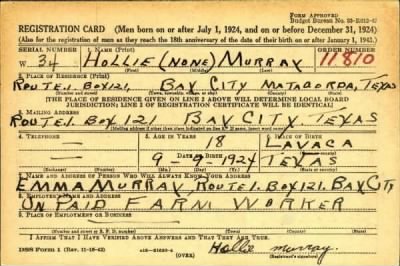 FORM APPROVED
REGISTRATION CARD (Men born on or after July 1, 1924, and on or before December 31, 1924)
(Also for the registration of men as they reach the 18th anniversary of the date of their birth on or after January 1, 1943.)
SERIAL NUMBER 1. NAME (Print) ORDER NUMBER
W 34 HOLLIE (NONE) MURRAY 11810
2. PLACE OF RESIDENCE (Print)
ROUTE 1. BOX 121, BAY CITY MATAGORDA, TEXAS
[THE PLACE OF RESIDENCE GIVEN ON LINE 2 ABOVE WILL DETERMINE LOCAL BOARD
JURISDICTION; LINE 2 OF REGISTRATION CERTIFICATE WILL BE IDENTICAL]
3. MAILING ADDRESS
ROUTE 1. BOX 121 BAY CITY. TEXAS
4. TELEPHONE 5. AGE IN YEARS 6. PLACE OF BIRTH
18 LAVACA
9 - 9 - 1924 TEXAS
7. NAME AND ADDRESS OF PERSON WHO WILL ALWAYS KNOW YOUR ADDRESS
EMMA MURRAY ROUTE 1. BOX 121. BAY CITY
8. EMPLOYER'S NAME AND ADDRESS
UNPAID FARM WORKER
9. PLACE OF EMPLOYMENT OR BUSINESS
I AFFIRM THAT I HAVE VERIFIED ABOVE ANSWERS AND THAT THEY ARE TRUE.
DSS Form 1 (OVER) Hollie murray.
(Registrant's signature)